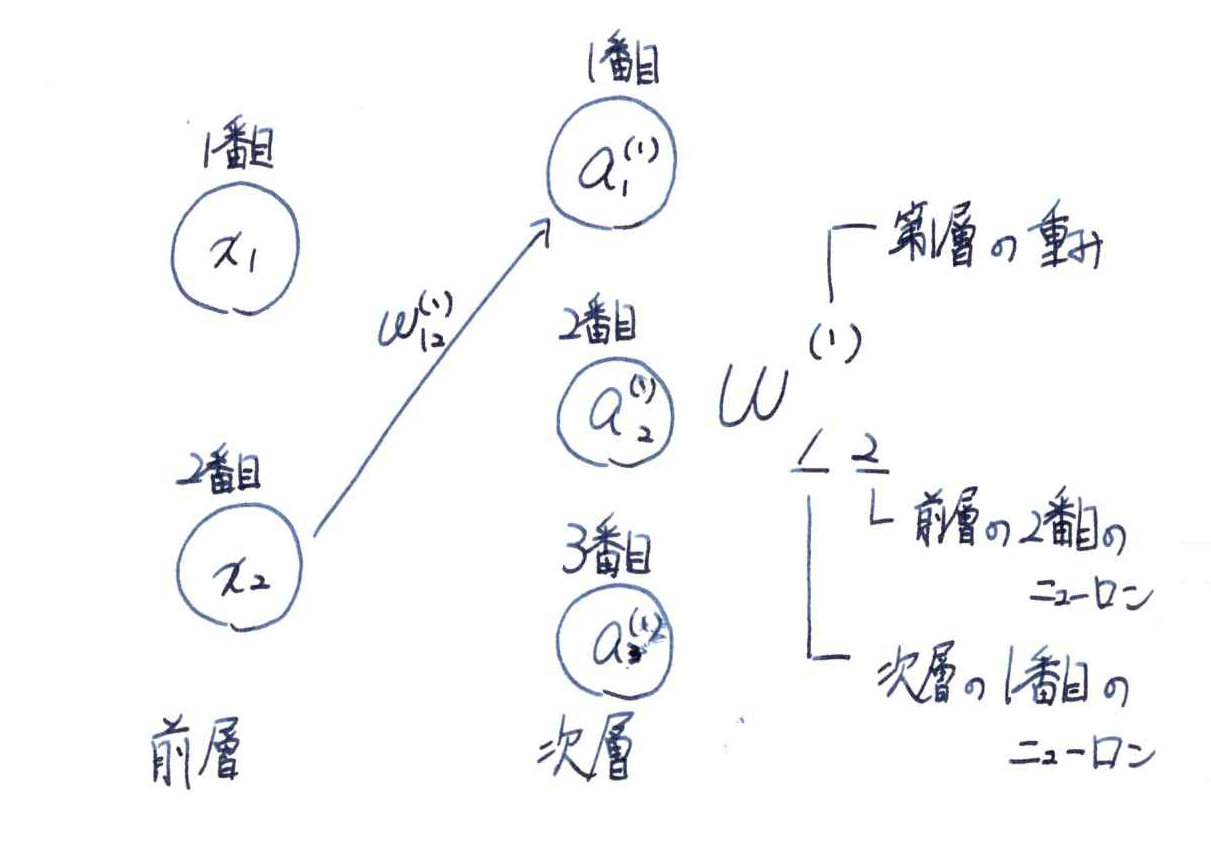 1番目
x₁
2番目
x₂
前層
w₁₂⁽¹⁾
1番目
a₁⁽¹⁾
2番目
a₂⁽¹⁾
3番目
a₃⁽¹⁾
次層
第1層の重み
w₁₂⁽¹⁾
前層の2番目の
ニューロン
次層の1番目の
ニューロン